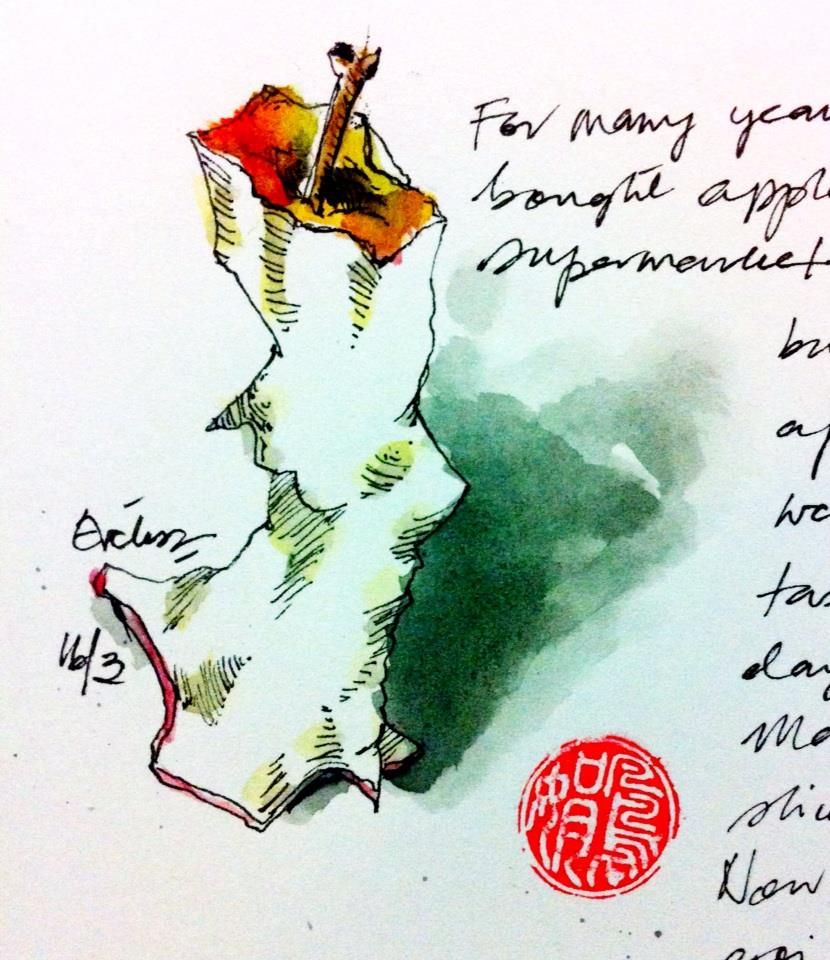 For many year
bought appl
supermarket
bu
ap
wa
tas
day
Ma
slic
Now
16/3